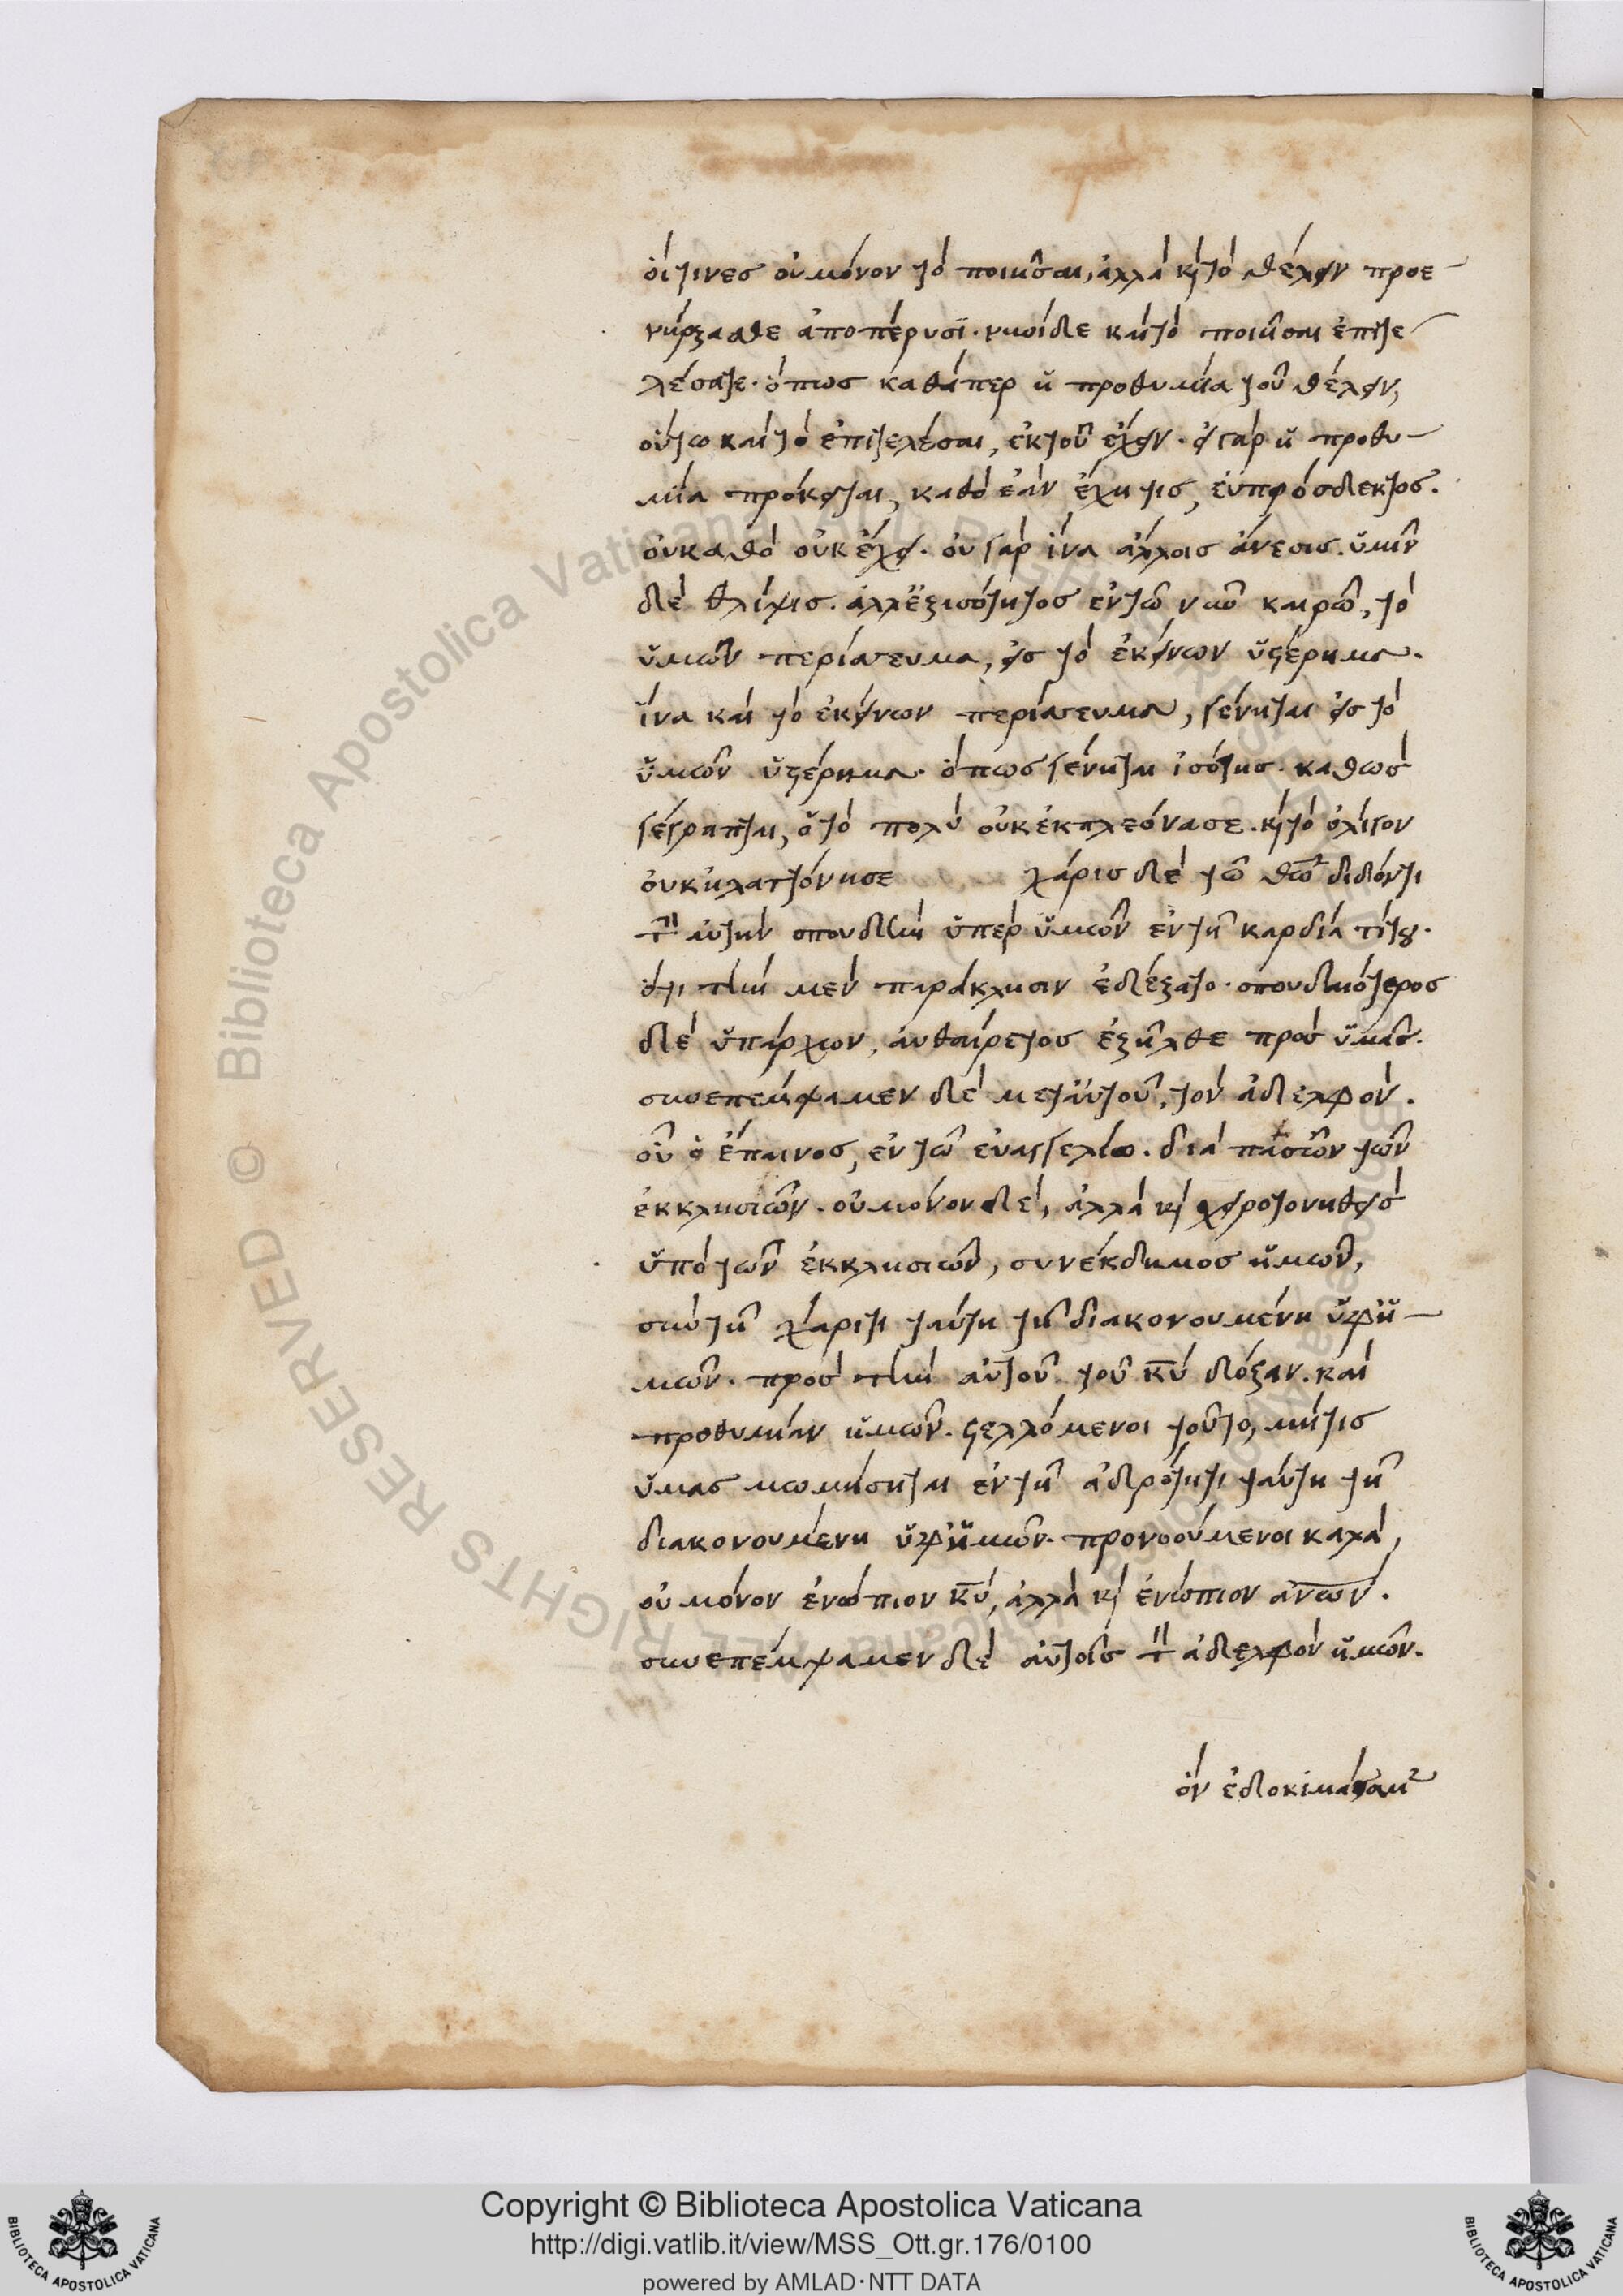 οἵτινες οὐ μόνον τὸ ποιῆσαι, ἀλλὰ κ τὸ θέλειν προε
νήρξασθε ἀποπέρυσϊ. νυνὶ δὲ καὶ τὸ ποιῆσαι ἐπιτε
λέσατε. ὅπως καθάπερ ἡ προθυμία τοῦ θέλειν,
οὕτω καὶ τὸ ἐπιτελέσαι, ἐκ τοῦ ἔχειν. εἰ γαρ ἡ προθυ
μία πρόκειται, καθὸ ἐὰν ἔχῃ τις, εὐπρόσδεκτος.
οὐ καθὸ οὐκ ἔχει. οὐ γαρ ἵνα ἄλλοις ἄνεσις. ὑμῖν
δὲ θλίψις. ἀλλ' ἐξ ισότητος ἐν τῶ νυν καιρῶ, τὸ
ὑμῶν περίσσευμα, εἰς τὸ ἐκείνων ὑστέρημα.
ἵνα καὶ τὸ ἐκείνων περίσσευμα, γένηται εἰς τὸ
ὑμῶν ὑστέρημα. ὅπως γένηται ἰσότης. καθὼς
γέγραπται, ὁ τὸ πολὺ οὐκ ἐκπλεόνασε. κ τὸ ὀλίγον
οὐκ ἠλαττόνησε χάρις δὲ τῶ θῶ διδόντι
τ αὐτὴν σπουδὴν ὑπὲρ ὑμῶν ἐν τῆ καρδία τίτου.
ὅτι τὴν μὲν παράκλησιν ἐδέξατο. σπουδαιότερος
δὲ ὑπάρχων, αὐθαίρετος ἐξῆλθε πρὸς ὑμᾶς.
συνεπέμψαμεν δὲ μετ' αὐτοῦ, τὸν ἀδελφὸν.
οὗ ὁ ἔπαινος, ἐν τῶ εὐαγγελίω. διὰ πασῶν τῶν
ἐκκλησιῶν. οὐ μόνον δὲ, ἀλλὰ κ χειροτονηθεὶς
ὑπὸ τῶν ἐκκλησιῶν, συνέκδημος ἡμῶν,
σὺν τῆ χάριτι ταύτη τῆ διακονουμένη ὑφ' ἡ
μῶν. πρὸς τὴν αὐτοῦ τοῦ κυ δόξαν. καὶ
προθυμίαν ἡμῶν. στελλόμενοι τοῦτο, μήτις
ὑμᾶς μωμήσηται ἐν τῆ ἁδρότητι ταύτη τῆ
διακονουμένη ὑφ' ἡμῶν. προνοούμενοι καλὰ,
οὐ μόνον ἐνώπιον κυ, ἀλλὰ κ ἐνώπιον ανων.
συνεπέμψαμεν δὲ αὐτοῖς τ ἀδελφὸν ἡμῶν.
ὃν ἐδοκιμάσαμ
Copyright © Biblioteca Apostolica Vaticana
http://digi.vatlib.it/view/MSS_Ott.gr.176/0100
powered by AMLAD·NTT DATA